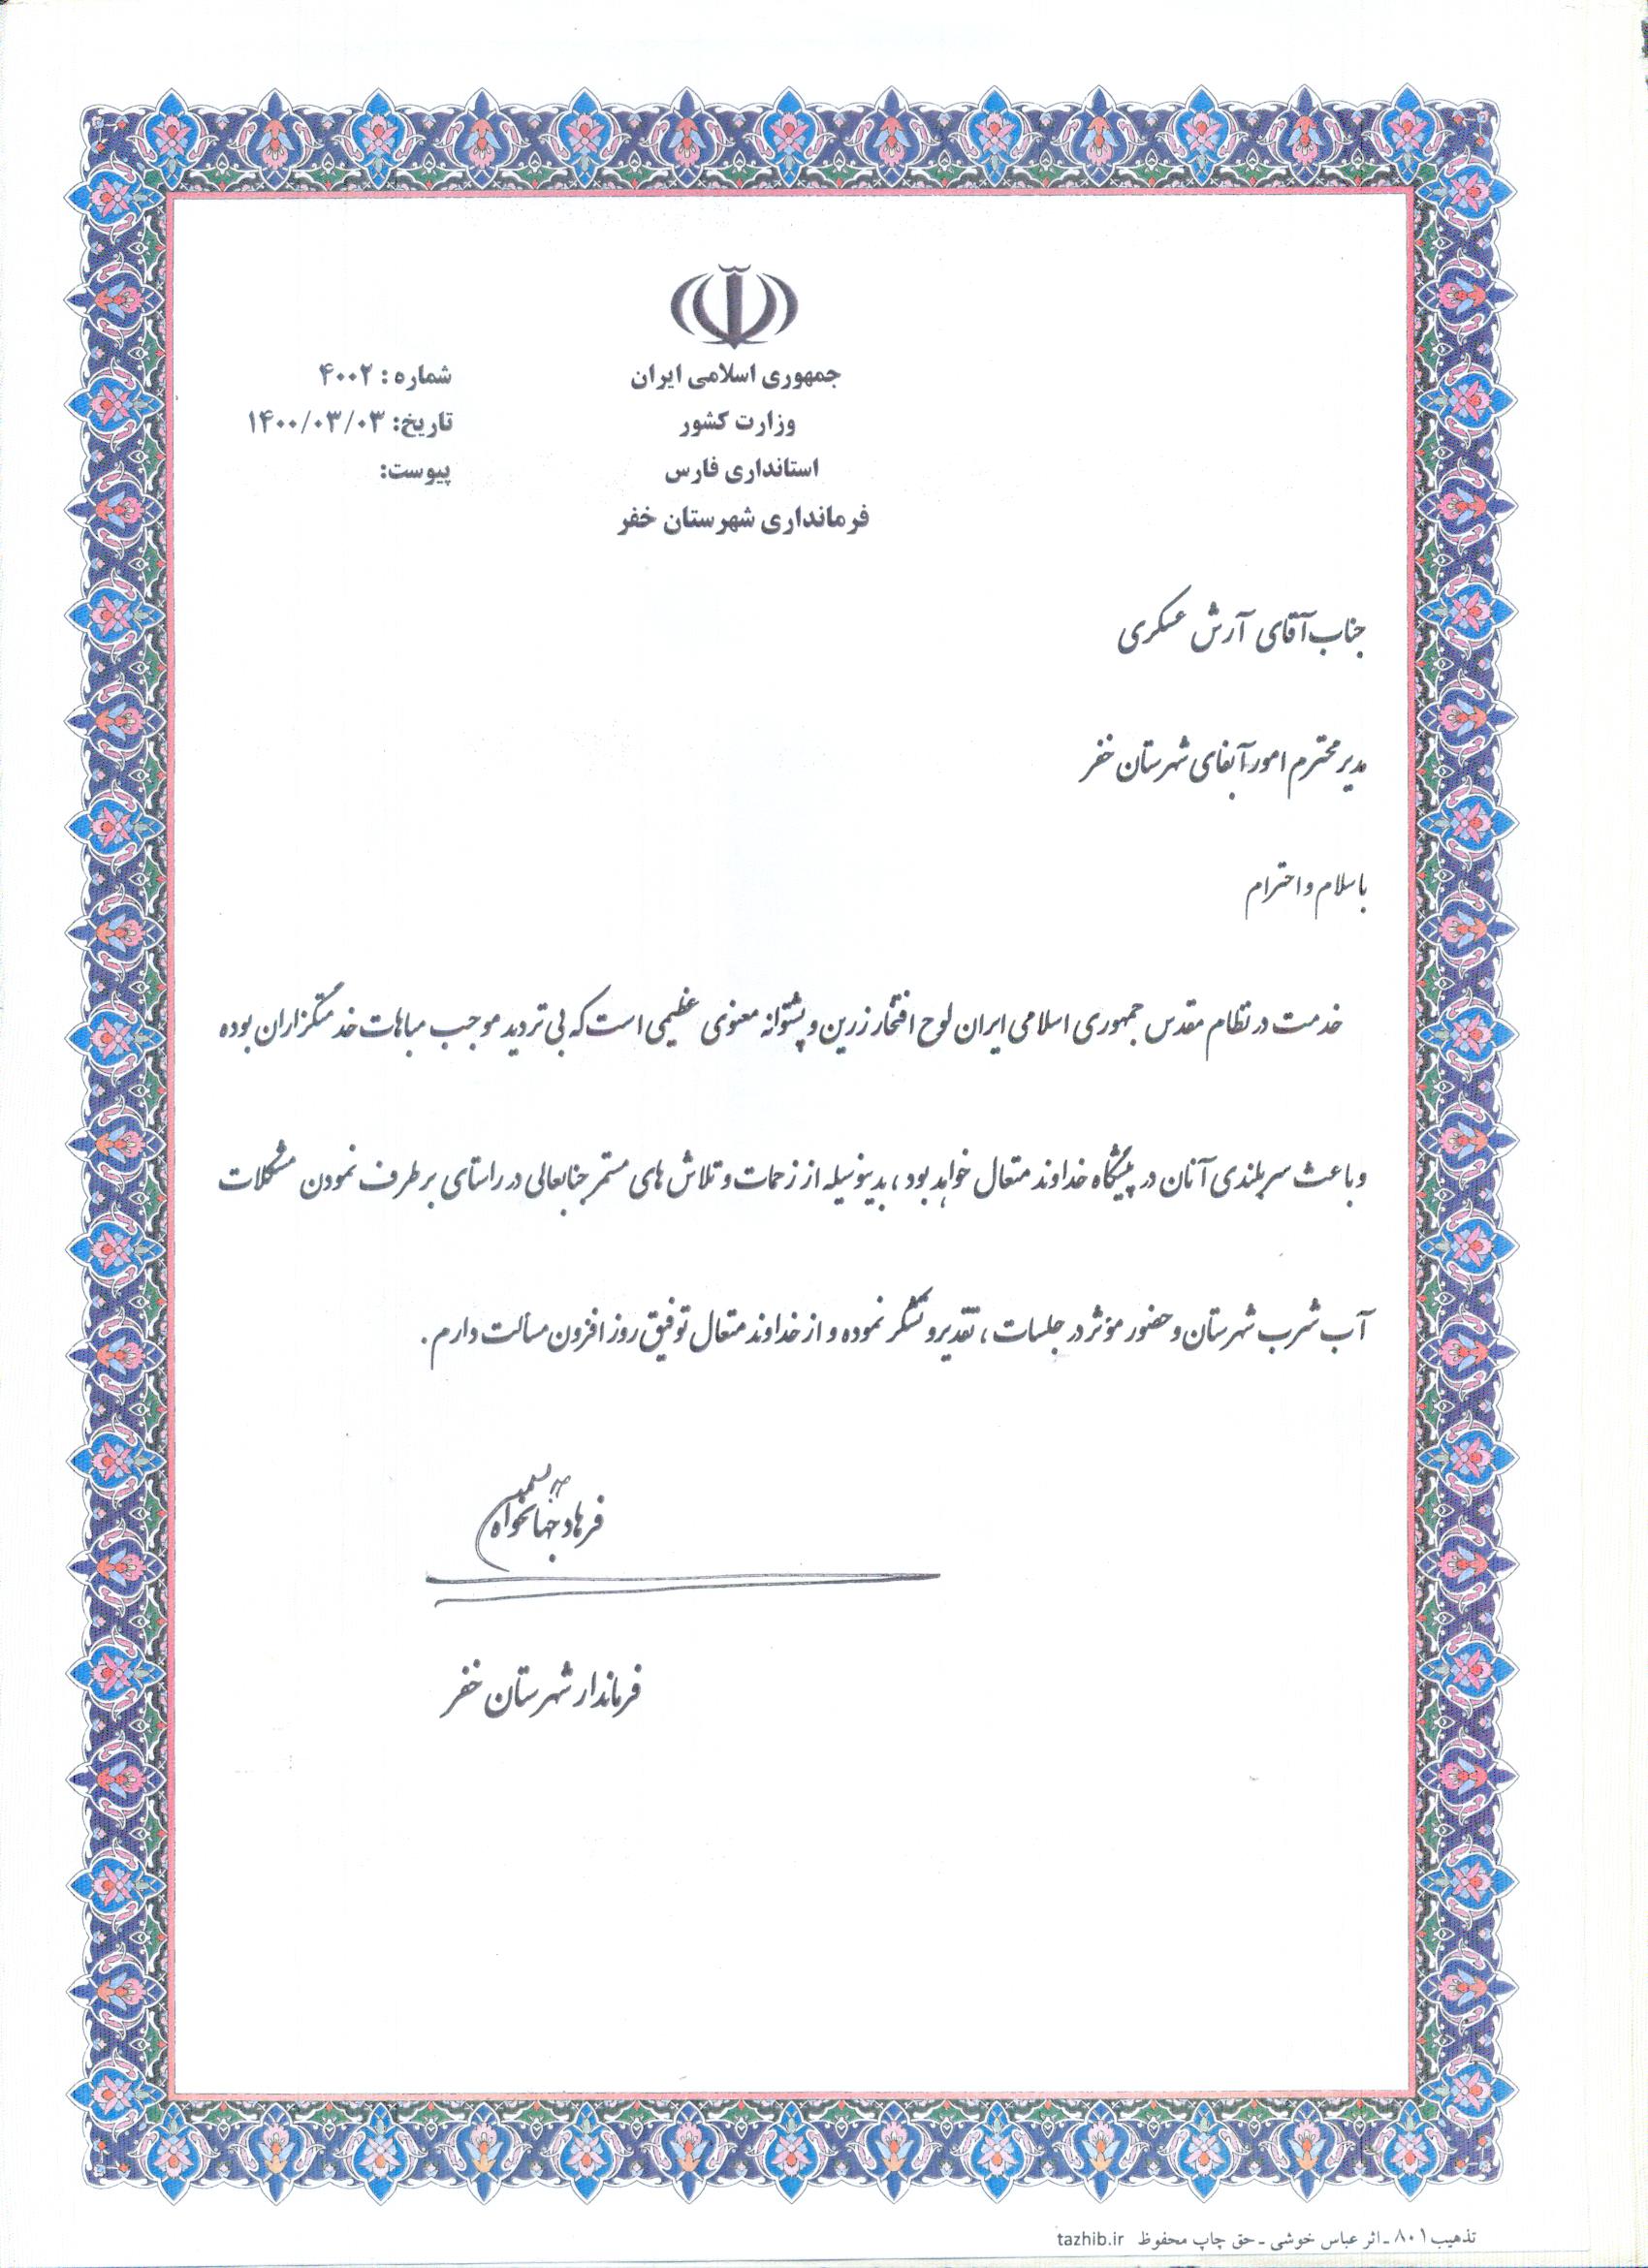 جمهوری اسلامی ایران
وزارت کشور
استانداری فارس
فرمانداری شهرستان خفر
شماره : ۴۰۰۲
تاریخ: ۱۴۰۰/۰۳/۰۳
پیوست:
جناب آقای آرش عسکری
مدیر محترم امور آبفای شهرستان خفر
با سلام و احترام
خدمت در نظام مقدس جمهوری اسلامی ایران لوح افتخار زرین و پشتوانه معنوی عظیمی است که بی تردید موجب مباهات خدمتگزاران بوده
و باعث سربلندی آنان در پیشگاه خداوند متعال خواهد بود ، بدینوسیله از زحمات و تلاش های مستمر جنابعالی در راستای بر طرف نمودن مشکلات
آب شرب شهرستان و حضور مؤثر در جلسات ، تقدیر و تشکر نموده و از خداوند متعال توفیق روز افزون مسالت دارم .
فرهاد جهانخواه
فرماندار شهرستان خفر
تذهیب ۸۰۱ - اثر عباس خوشی - حق چاپ محفوظ tazhib.ir